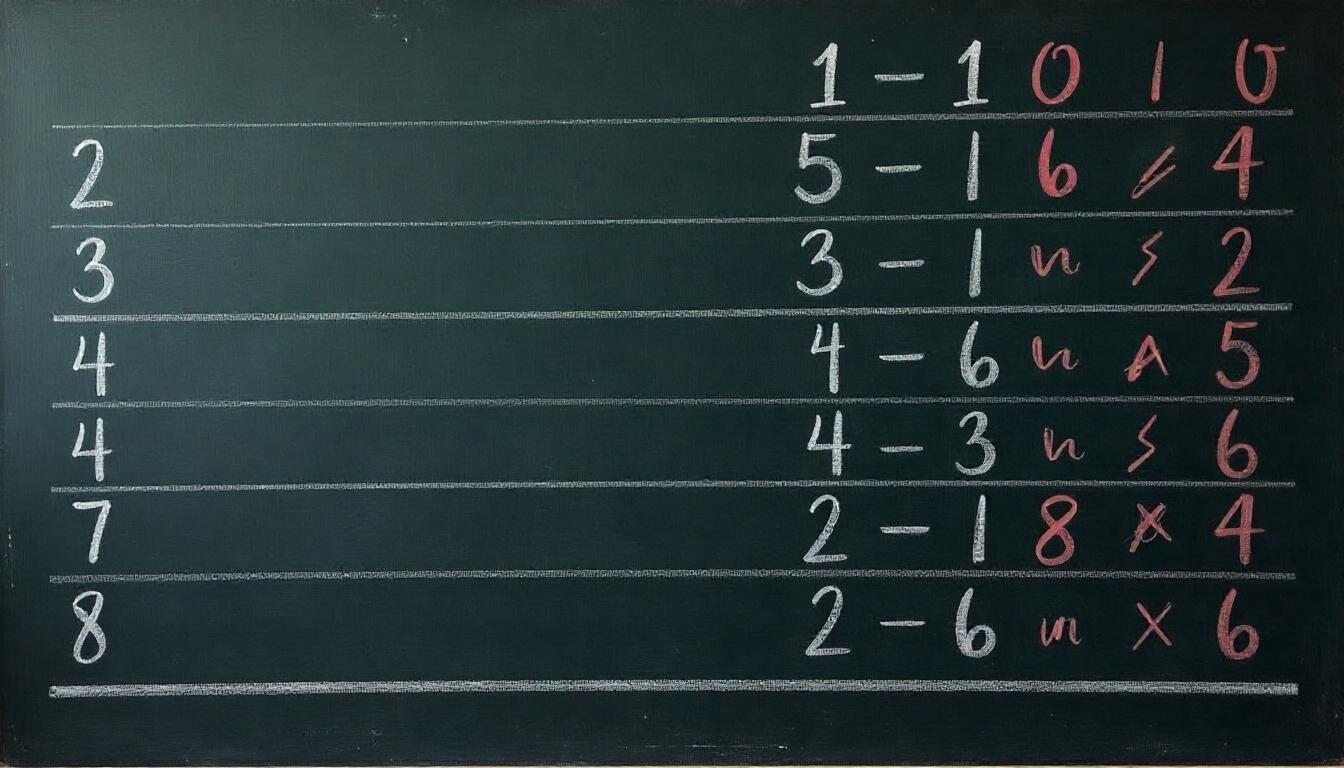 1 – 1 0 1 0
2 5 – 1 6 / 4
3 3 – 1 n s 2
4 4 – 6 n A 5
4 4 – 3 n s 6
7 2 – 1 8 x 4
8 2 – 6 x 6